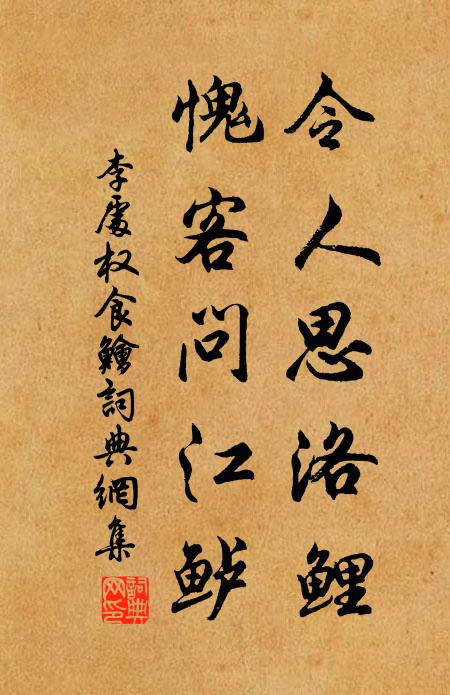 令人思洛鲤
愧客问江鲈
李處权食鱠詞典網集
詞典网印